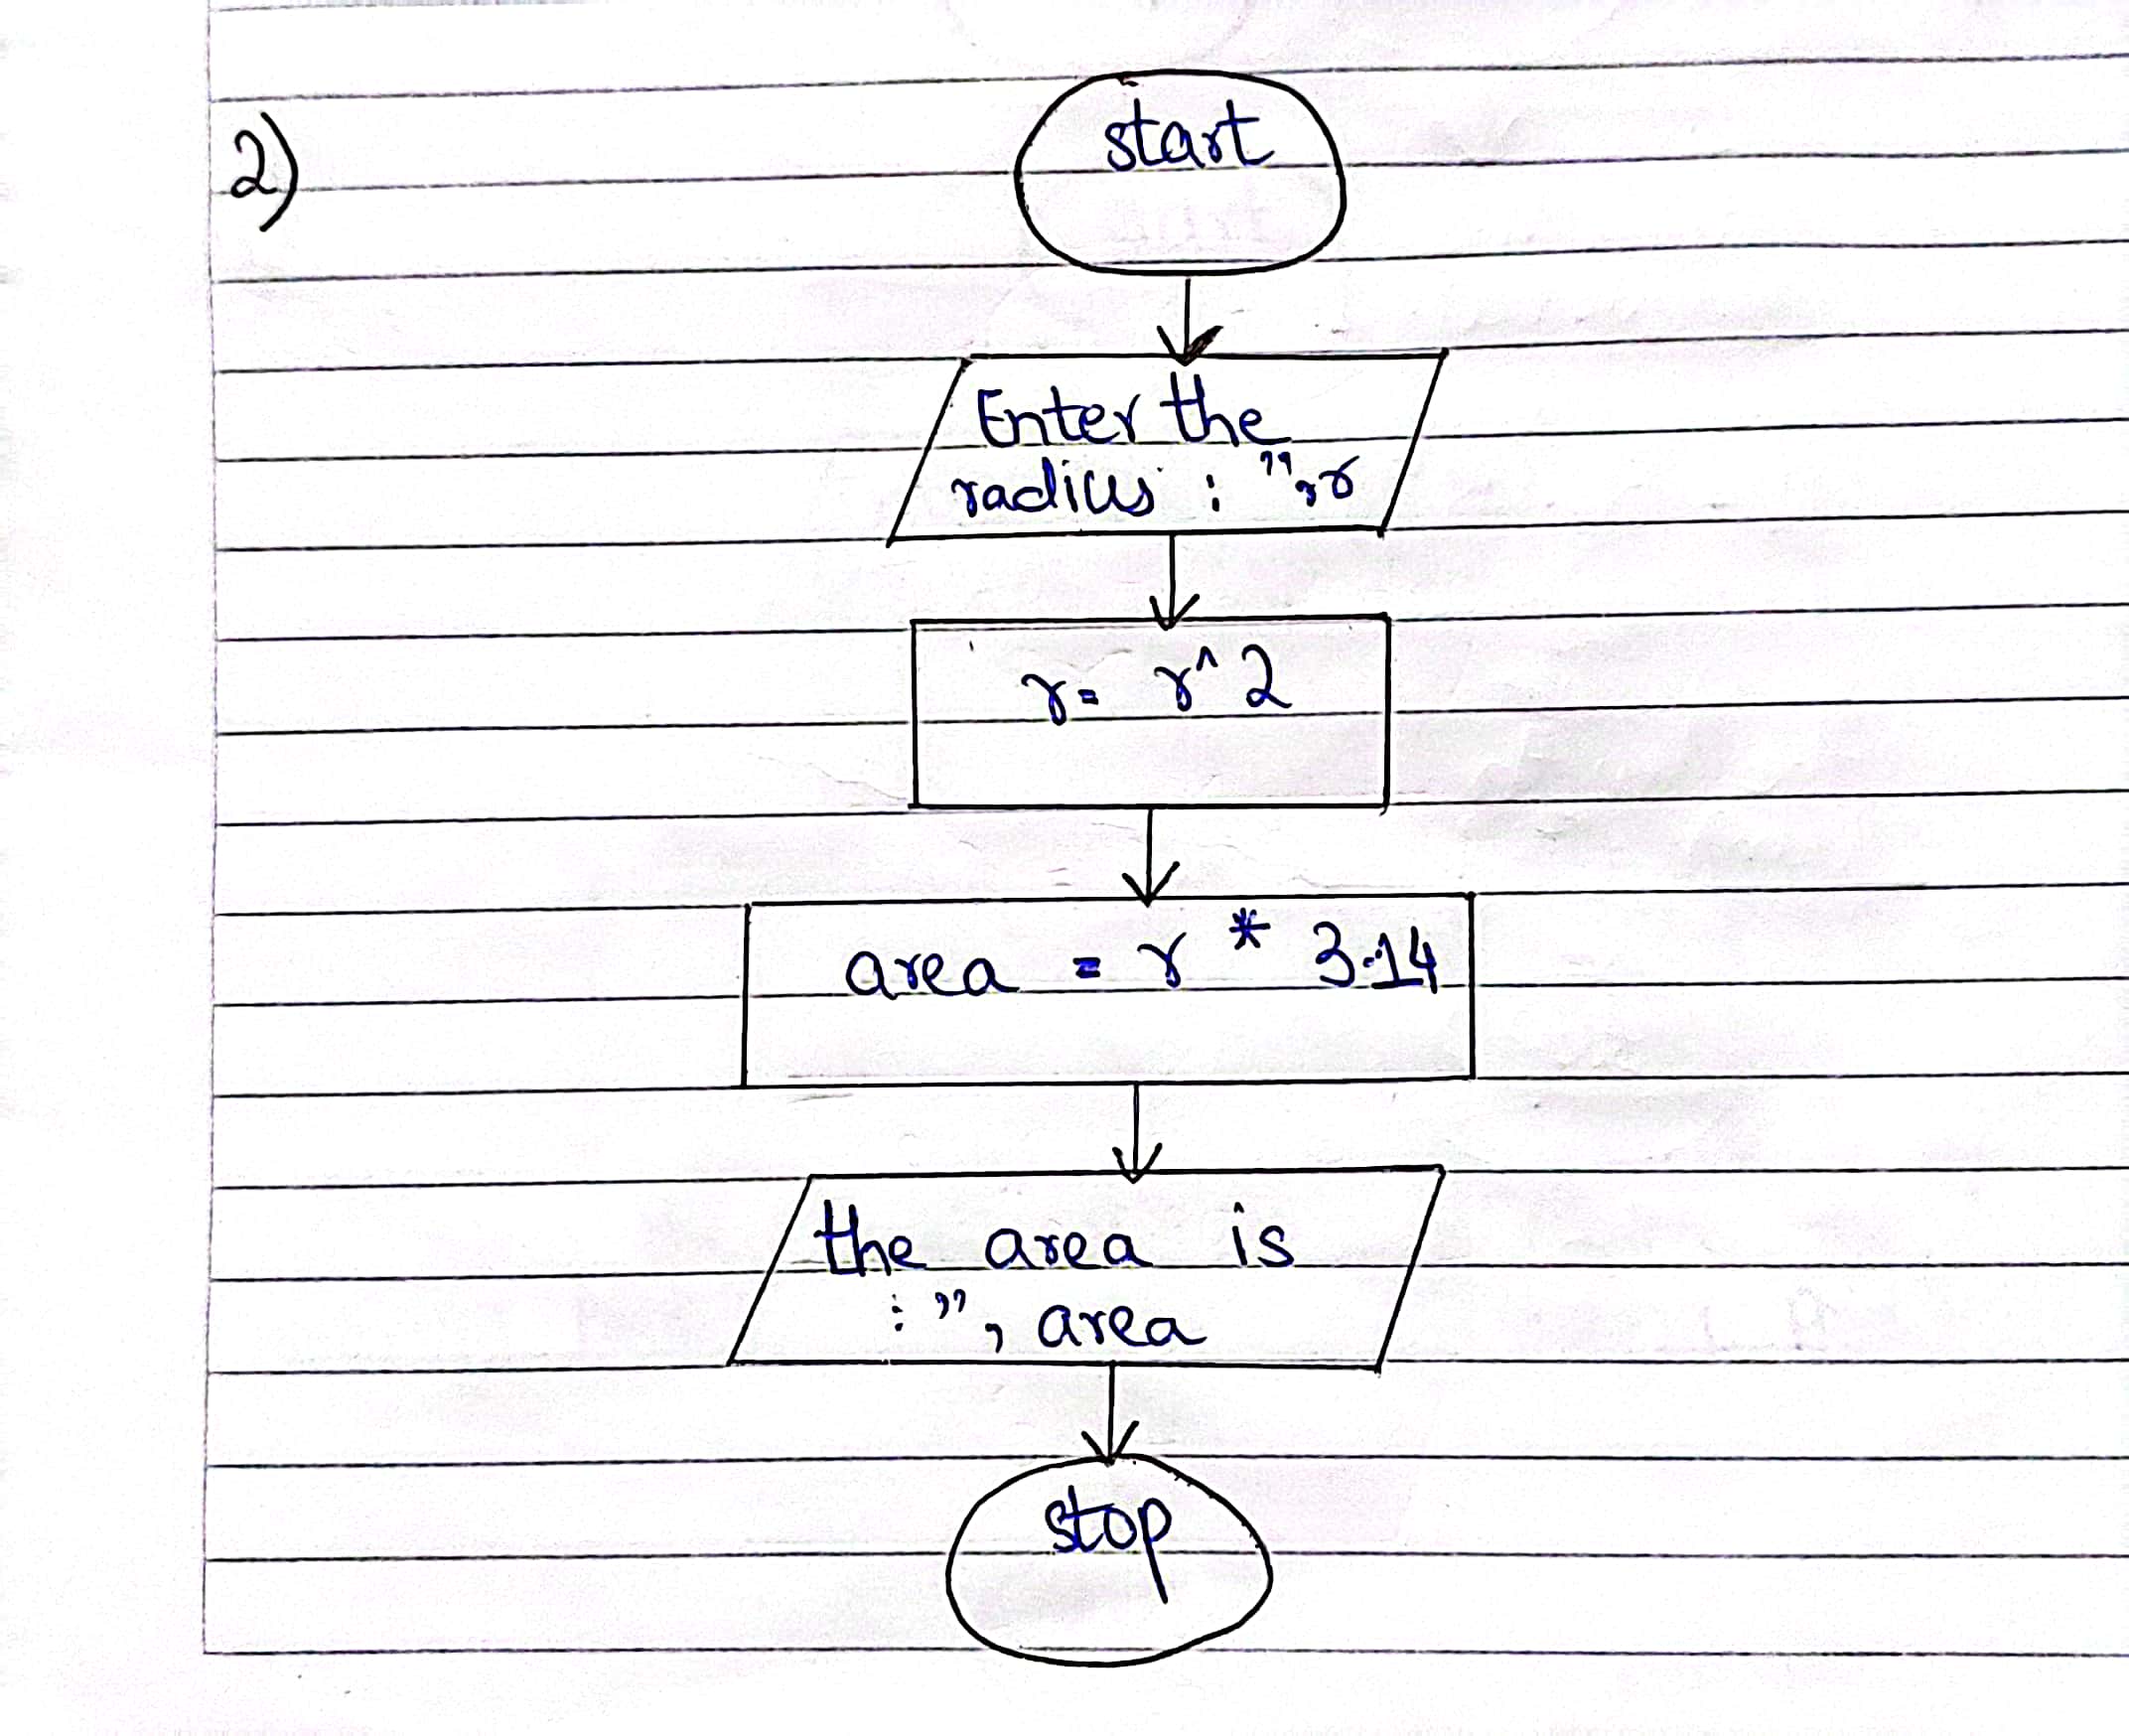 2)
start
Enter the
radius : ”,r
r= r^2
area = r * 3.14
the area is
: ”, area
stop